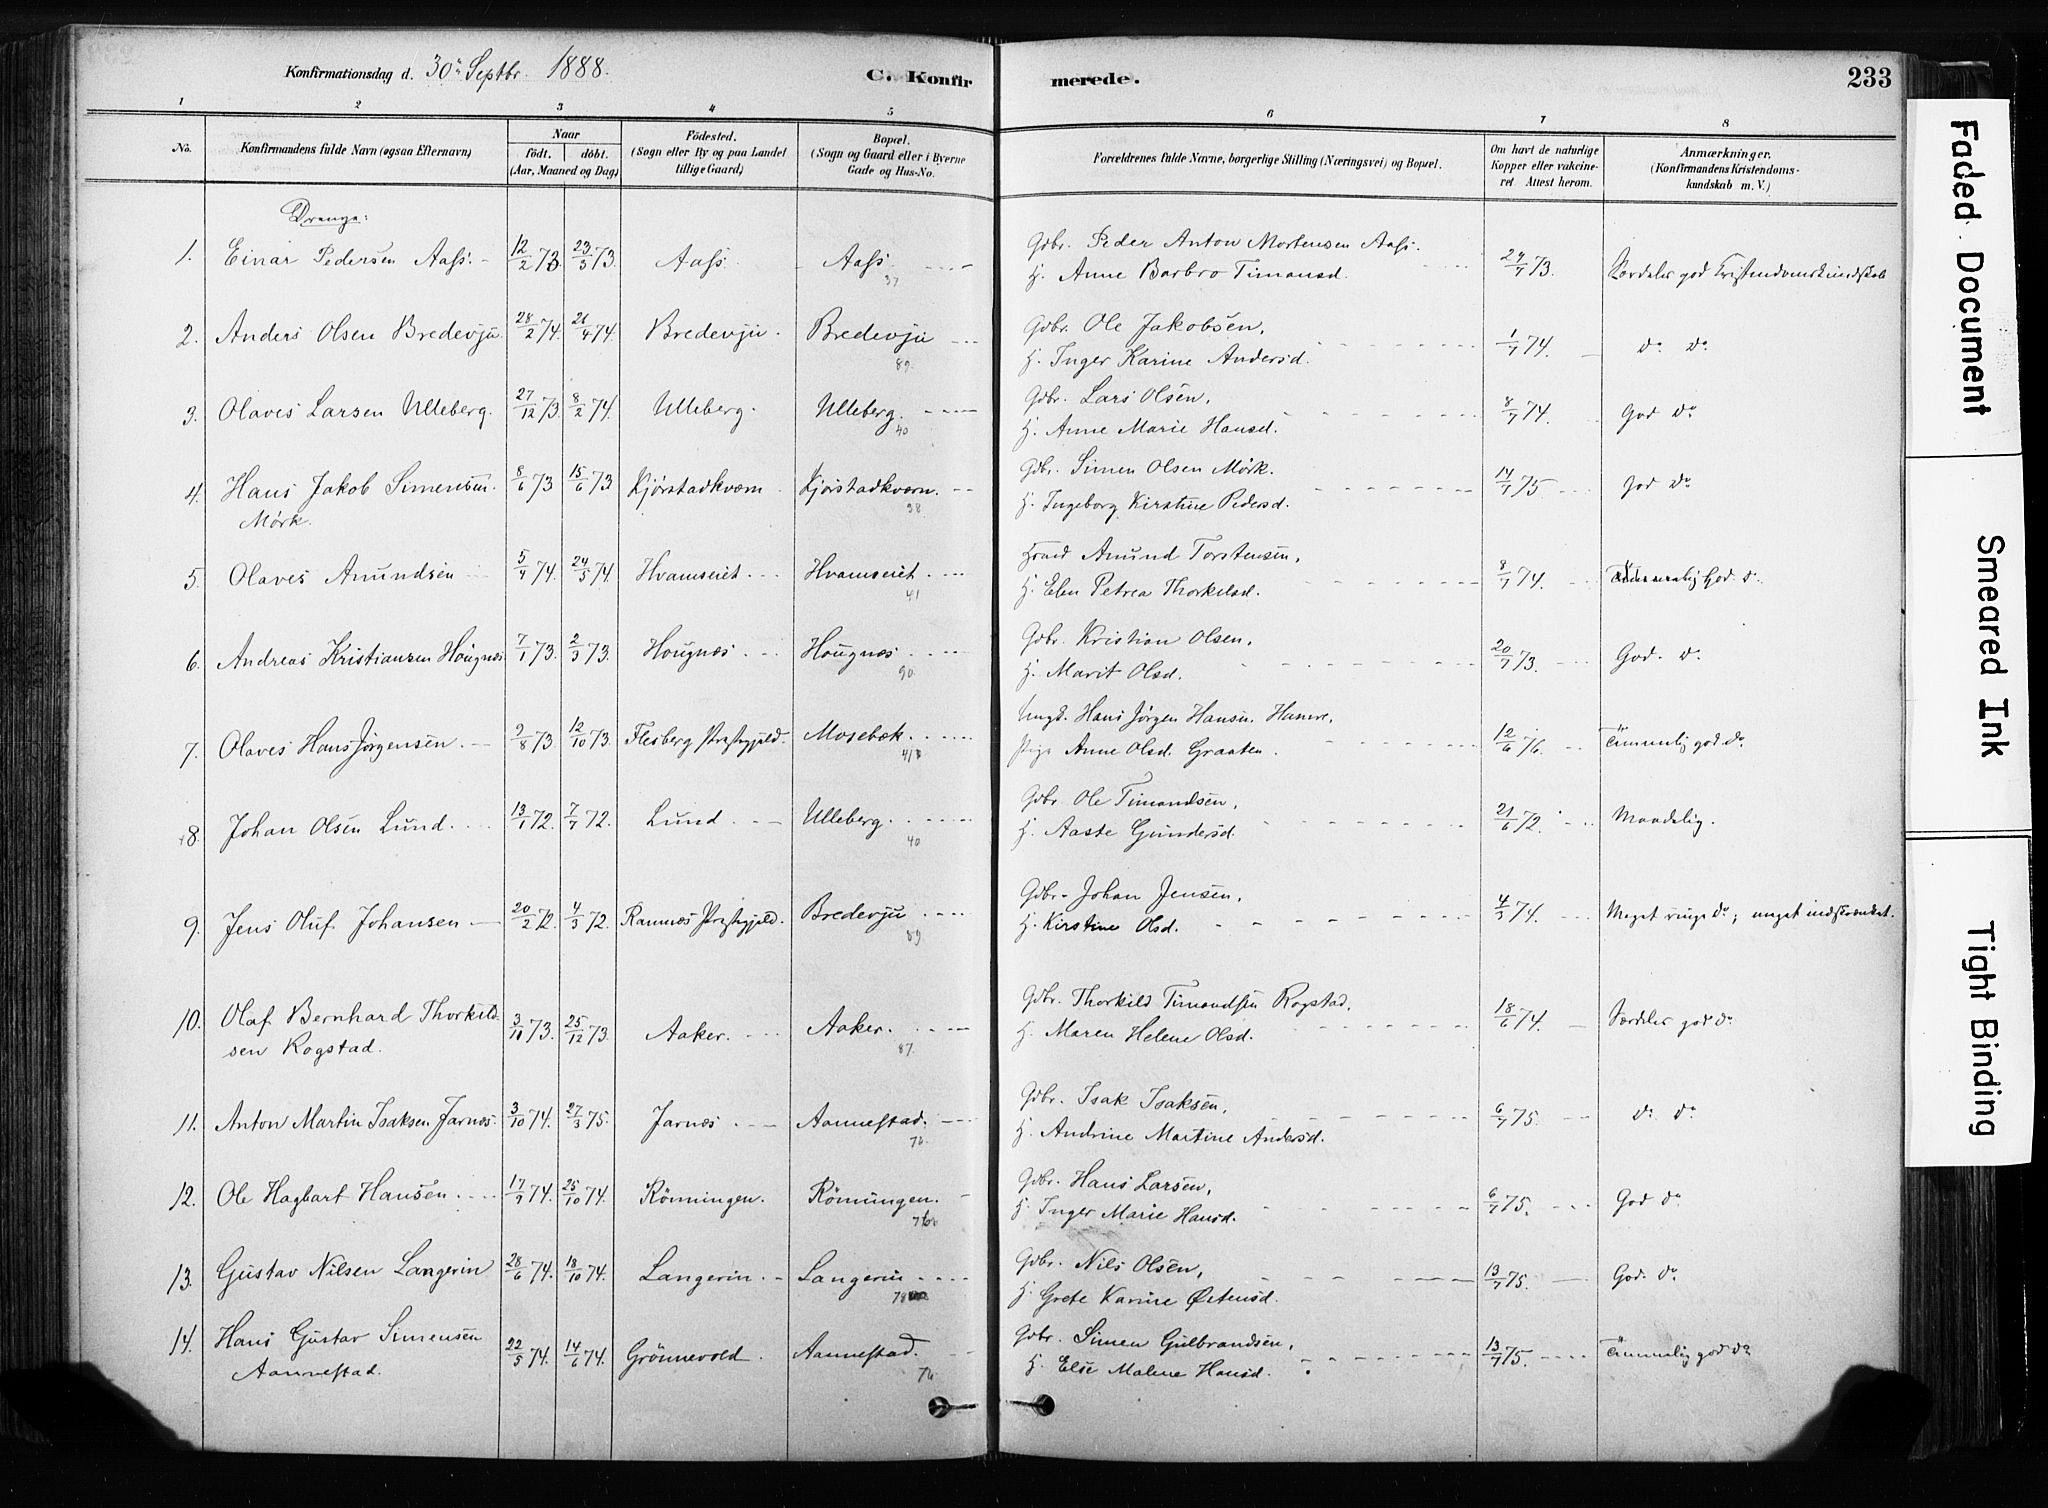 Konfirmationsdag d. 30te Septbr. 1888. C. Konfirmerede. 233
1 2 3 4 5 6 7 8
No. Konfirmandens fulde Navn (ogsaa Efternavn) Naar født. døbt. (Aar, Maaned og Dag) Födested. (Sogn eller By og paa Landet tillige Gaard) Bopæl. (Sogn og Gaard eller i Byerne Gade og Hus-No. Forældrenes fulde Navne, borgerlige Stilling (Næringsvei) og Bopæl. Om havt de naturlige Kopper eller vakcineret Attest herom. Anmærkninger. (Konfirmandens Kristendomskundskab m. V.)
Drenge:
1. Einar Pedersen Aass. 12/2 73. 23/3 73. Aass. Aass 37 Gdbr. Peder Anton Mortensen Aass. H. Anne Barbro Timansd. 24/7 73. Særdeles god Kristendomskundskab
2. Anders Olsen Bredevju 28/2 74. 26/4 74. Bredevju. Bredevju 89. Gdbr. Ole Jakobsen, H. Inger Karine Andersd. 1/7 74. do do
3. Olaves Larsen Ulleberg. 27/12 73. 8/2 74. Ulleberg. Ulleberg. 40 Gdbr. Lars Olsen, H. Anne Marie Hansd. 8/7 74. God do
4. Hans Jakob Simensen Mørk. 8/6 73 15/6 73 Kjørstadkværn Kjørstadkværn. 38 Gdbr. Simen Olsen Mørk. H. Ingeborg Kirstine Pedersd. 14/7 75. God do
5. Olaves Amundsen 5/4 74. 24/5 74. Hvamseiet. Hvamseiet. 41 Amund Torstensen, H. Elen Petrea Thorkelsd. 8/7 74. god do.
6. Andreas Kristiansen Hougnæs 7/1 73. 2/3 73. Hougnæs. Hougnæs 90. Gdbr. Kristian Olsen, H. Marit Olsd. 20/7 73. God. do.
7. Olaves Hans Jørgensen. 9/8 73 12/10 73. Flesberg Præstegjeld. Mosebæk. Ungk. Hans Jørgen Hansen Hanere, Pige Anne Olsd. Graaten. 12/6 76. Temmelig god do.
+8. Johan Olsen Lund. 13/1 72. 7/7 72. Lund. Ulleberg. 40 Gdbr Ole Timandsen, H. Aaste Gundersd. 21/6 72. Maadelig.
9. Jens Oluf Johansen 20/2 72. 4/3 72. Ramnæs Præstegjeld. Bredevju. 89 Gdbr. Johan Jensen, H. Kirstine Olsd. 4/3 74. Meget ringe do; meget indskrænket.
10. Olaf Bernhard Thorkildsen Rogstad. 3/10 73. 25/12 73. Aaker. Aaker. 87. Gdbr. Thorkild Timandsen Rogstad, H. Maren Helene Olsd. 18/6 74. Særdeles god do
11. Anton Martin Isaksen Jarnæs. 3/10 74. 27/3 75. Jarnæs. Aannestad. 76. Gdbr. Isak Isaksen, H. Andrine Martine Andersd. 6/7 75. do. do.
12. Ole Hagbart Hansen. 17/9 74. 25/10 74. Rönningen. Rönningen. Gdbr. Hans Larsen, H. Inger Marie Hansd. 6/7 75. God do
13. Gustav Nilsen Langerin 28/6 74. 18/10 74. Langerin. Langerin 78 Gdbr. Nils Olsen, H. Grete Karine Østensd. 13/7 75. God. do.
14. Hans Gustav Simensen Aannestad. 22/5 74. 14/6 74. Grönnevold. Aannestad. 76. Gdbr. Simen Gulbrandsen, H. Else Malene Hansd. 13/7 75. Temmelig god do
Faded Document
Smeared Ink
Tight Binding